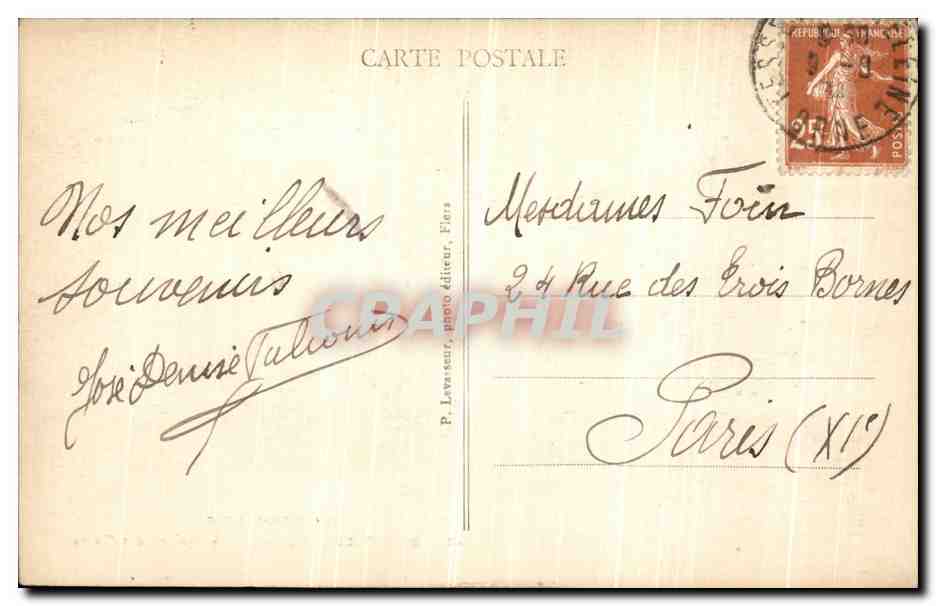 CARTE POSTALE
REPUBLIQUE FRANÇAISE
25
POSTES
ORNE
Nos meilleurs
souvenirs
José Denise
P. Levasseur, photo éditeur, Flers
Mesdames Foin
24 Rue des Trois Bornes
Paris (XIe)
CRAPHIL